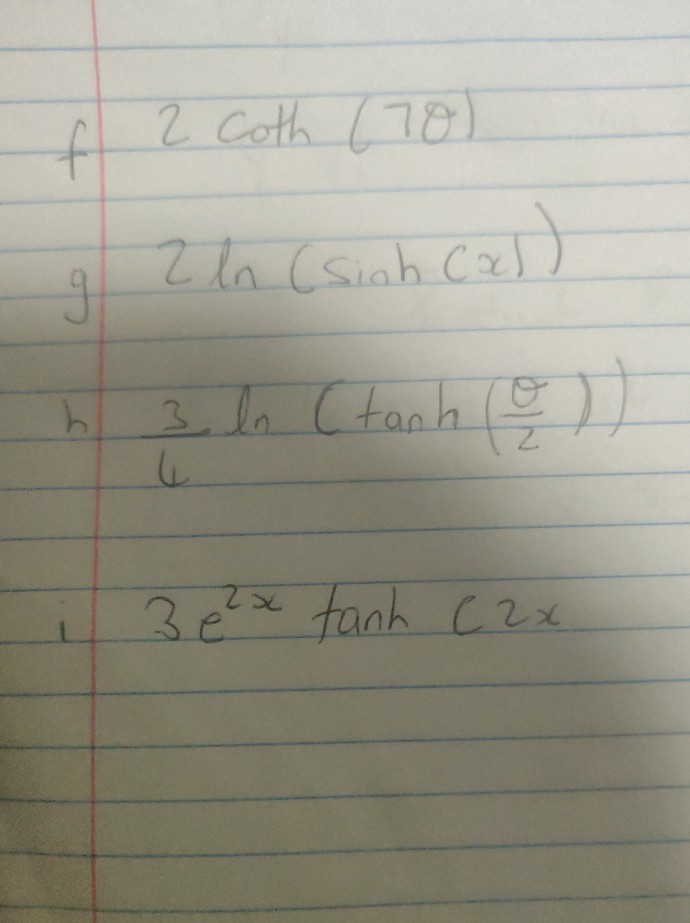 f 2 coth (7θ)
g 2 ln (sinh (x))
h 3/4 ln (tanh (θ/2))
i 3e^2x tanh (2x